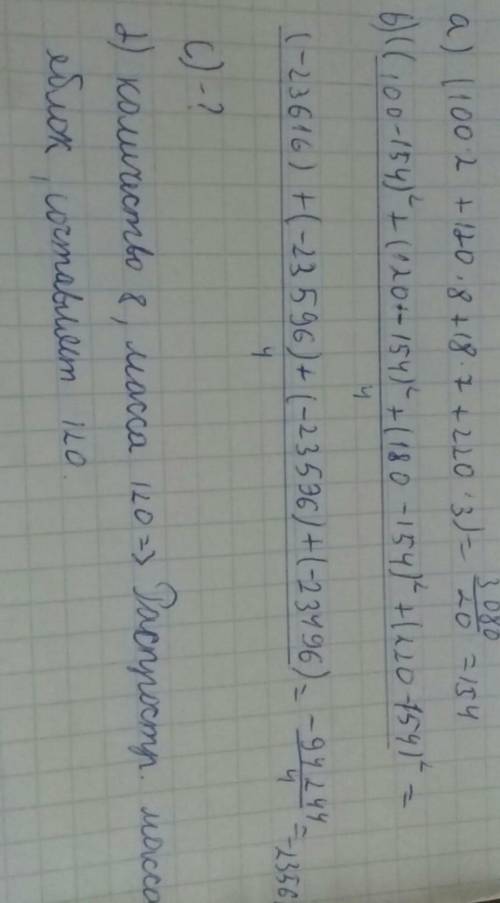 a) (100·2 + 120·8 + 18·7 + 220·3) = 3080/20 = 154
b) ((100-154)² + (120-154)² + (180-154)² + (220-154)² =
4
(-23616) + (-23596) + (-23536) + (-23496) = -94244/4 = -2356
4
c) - ?
d) количество 8, масса 120 => Распростр. масса
яблок, составляет 120.